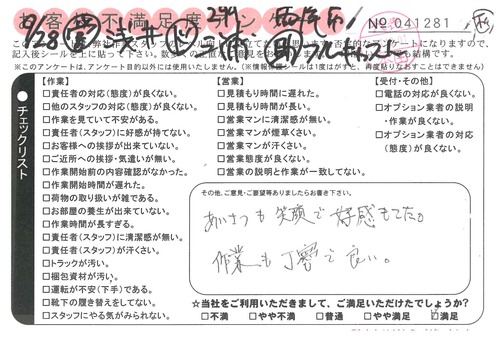 お客様不満足度アンケート
No 041281
9/28
記入後シールを上に貼って下さい。
(※このアンケートは、アンケート目的以外には使用いたしません。)(※情報保護シールは1度はがすと、再度貼りなおすことはできません)
チェックリスト
【作業】
□責任者の対応(態度)が良くない。
□他のスタッフの対応(態度)が良くない。
□作業を見ていて不安がある。
□責任者(スタッフ)に好感が持てない。
□お客様への挨拶が出来ていない。
□ご近所への挨拶・気遣いが無い。
□作業開始前の内容確認がなかった。
□作業開始時間が遅れた。
□荷物の取り扱いが雑である。
□お部屋の養生が出来ていない。
□作業時間が長すぎる。
□責任者(スタッフ)に清潔感が無い。
□責任者(スタッフ)が汗くさい。
□トラックが汚い。
□梱包資材が汚い。
□運転が不安(下手)である。
□靴下の履き替えをしてない。
□スタッフにやる気がみられない。
【営業】
□見積もり時間に遅れた。
□見積もり時間が長い。
□営業マンに清潔感が無い。
□営業マンが煙草くさい。
□営業マンが汗くさい。
□営業態度が良くない。
□営業の説明と作業が一致してない。
【受付・その他】
□電話の対応が良くない。
□オプション業者の説明・作業が良くない。
□オプション業者の対応(態度)が良くない。
その他、ご意見・ご要望等ありましたらお書き下さい。
あいさつも笑顔で好感もてた。
作業も丁寧で良い。
☆当社をご利用いただきまして、ご満足いただけたでしょうか?
□不満 □やや不満 □普通 □やや満足 ☑満足